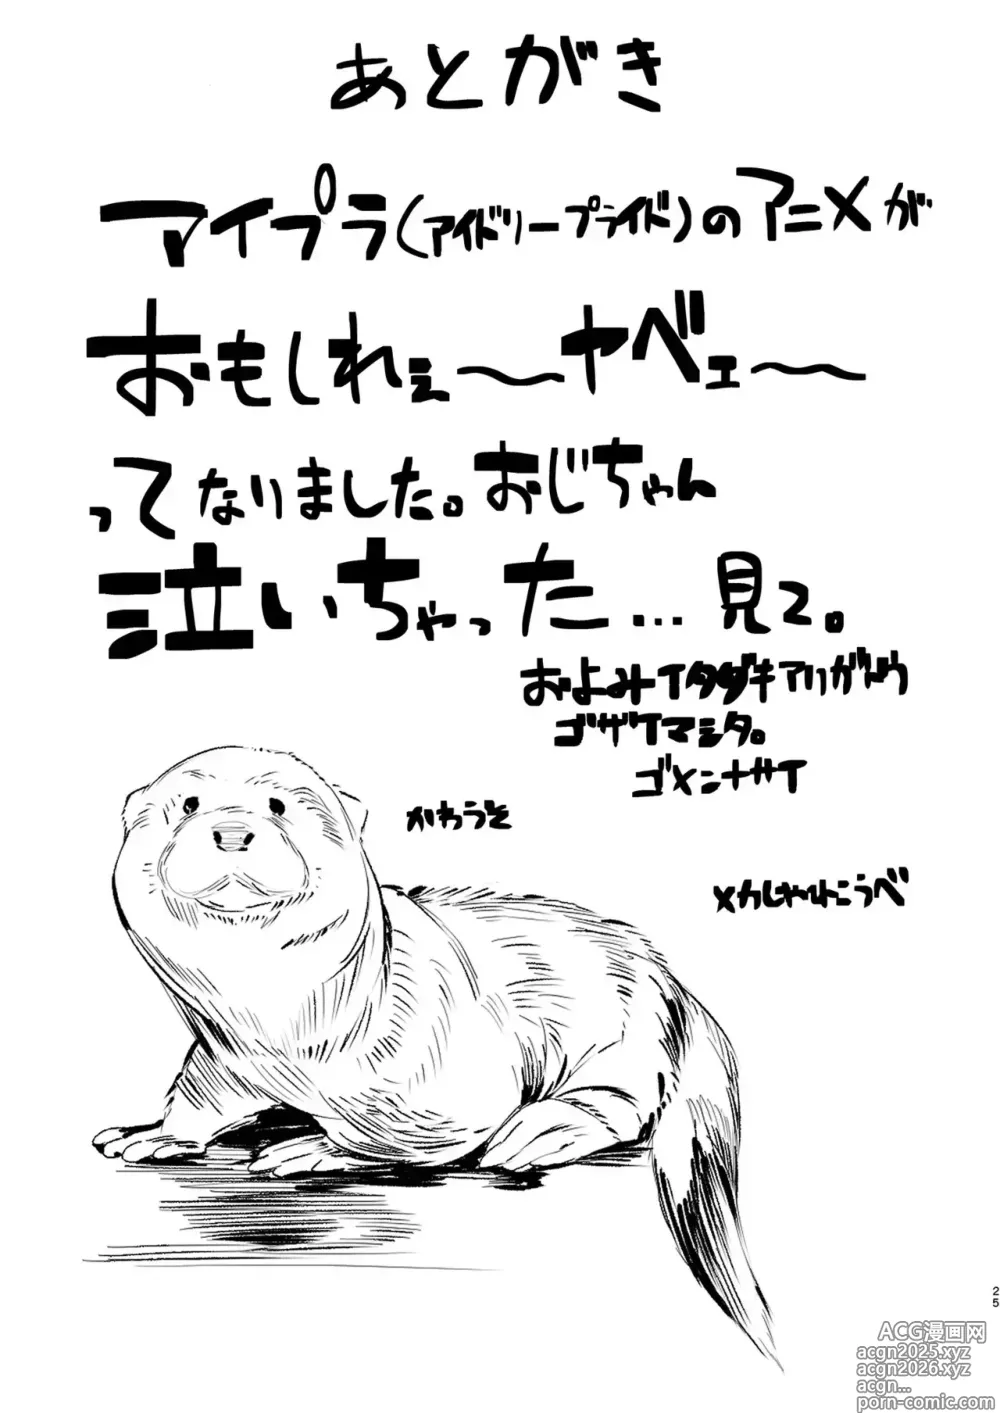 あとがき
アイプラ(アイドリープライド)のアニメが
おもしれぇ〜ヤベェ〜
ってなりました。おじちゃん
泣いちゃった...見て。
およみイタダキアリガトウ
ゴザイマシタ。
ゴメンナサイ
かわうそ
メカじゃひこうべ
25
ACG漫画网
acgn2025.xyz
acgn2026.xyz
acgn...
porn-comic.com